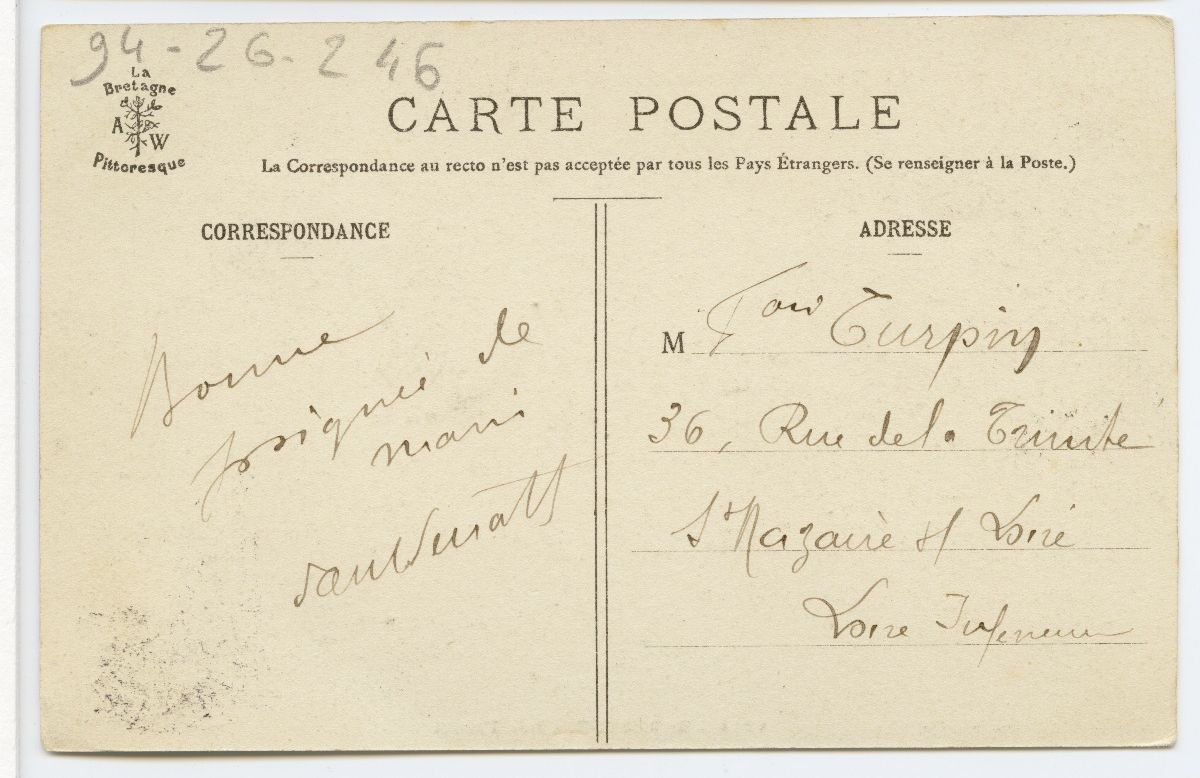 94-26-246
La
Bretagne
A W
Pittoresque
CARTE POSTALE
La Correspondance au recto n'est pas acceptée par tous les Pays Étrangers. (Se renseigner à la Poste.)
CORRESPONDANCE
Bonne
poignée de
main
ADRESSE
M Turpin
36, Rue de la Trinité
St Nazaire s/ Loire
Loire Inferieure